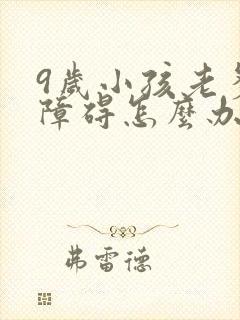 9歲小孩老
障碍怎麼办
弗雷德